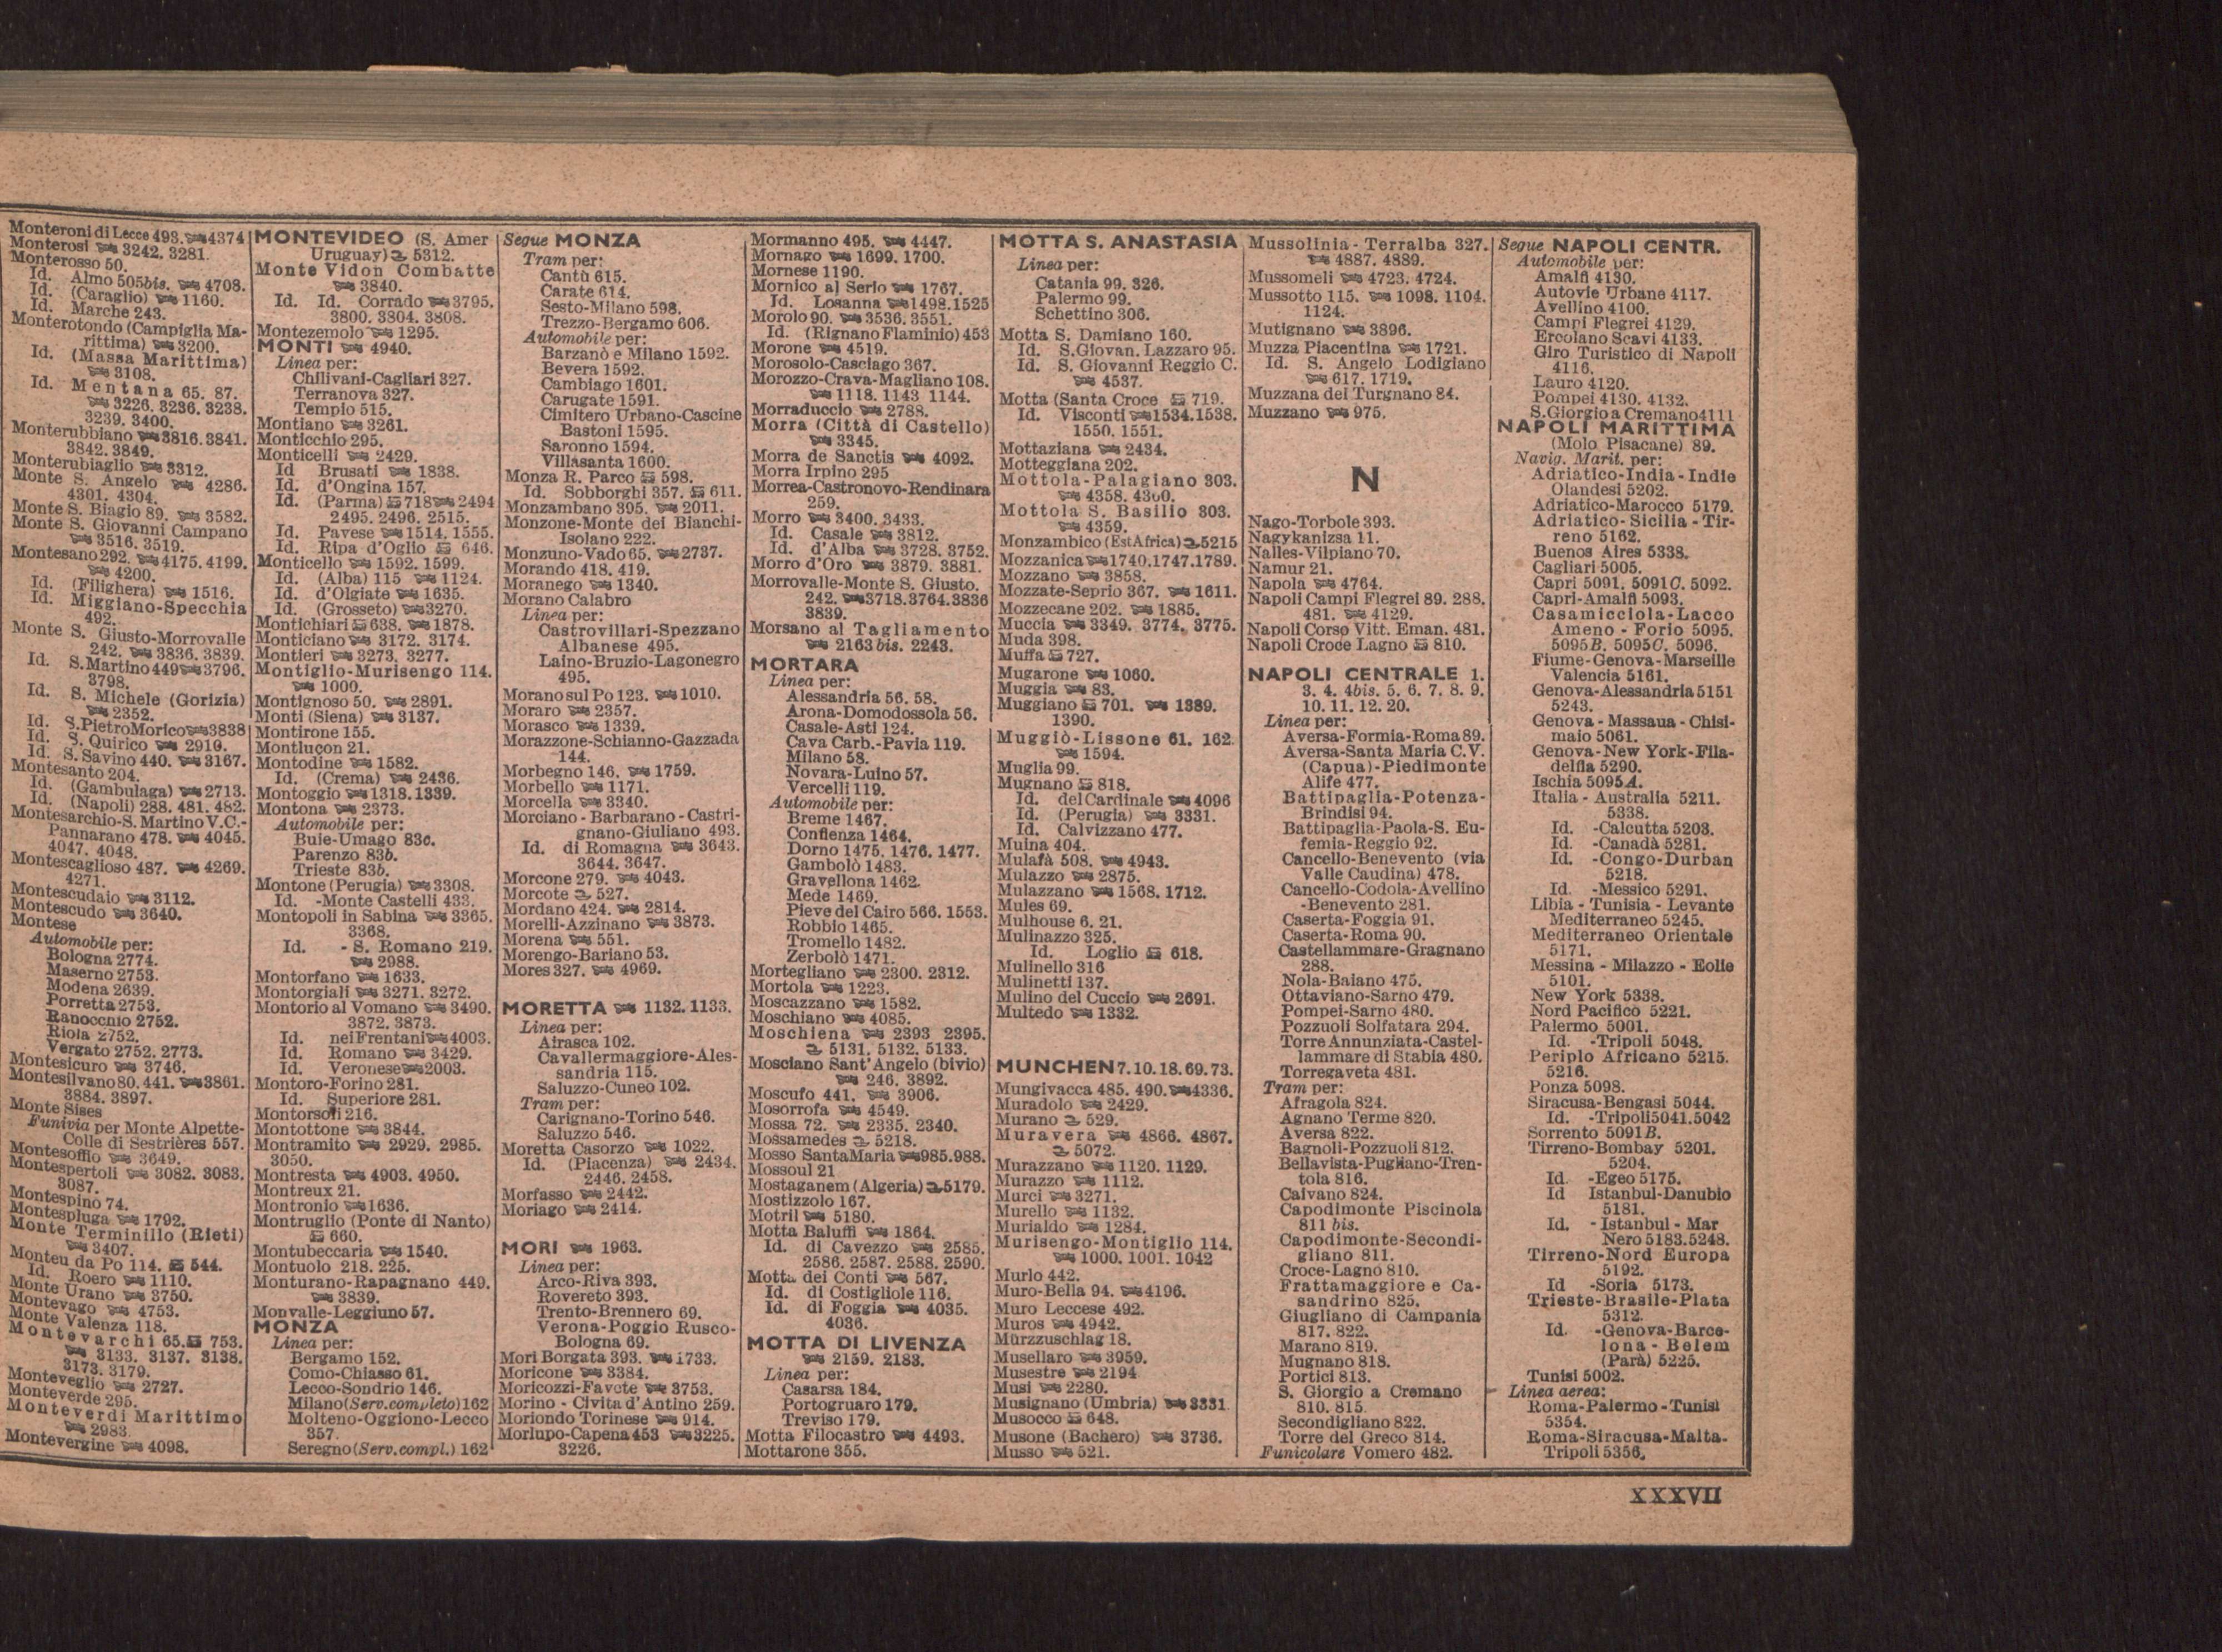 Monteroni di Lecce 493. 4374
Monterosi 3242. 3281.
Monterosso 50.
Id. Almo 505bis. 4708.
Id. (Caraglio) 1160.
Id. Marche 243.
Monterotondo (Campiglia Ma-
rittima) 3200.
Id. (Massa Marittima)
3108.
Id. Mentana 65. 87.
3226. 3236. 3238.
3239. 3400.
Monterubbiano 3816. 3841.
3842. 3849.
Monterubiaglio 3312.
Monte S. Angelo 4286.
4301. 4304.
Monte S. Biagio 89. 3582.
Monte S. Giovanni Campano
3516. 3519.
Montesano 292. 4175. 4199.
4200.
Id. (Filighera) 1516.
Id. Miggiano-Specchia
492.
Monte S. Giusto-Morrovalle
242. 3836. 3839.
Id. S.Martino 449 3796.
3798.
Id. S. Michele (Gorizia)
2352.
Id. S.PietroMorico 3838
Id. S. Quirico 2910.
Id. S.Savino 440. 3167.
Montesanto 204.
Id. (Gambulaga) 2713.
Id. (Napoli) 288. 481. 482.
Montesarchio-S. Martino V.C.-
Pannarano 478. 4045.
4047. 4048.
Montescaglioso 487. 4269.
4271.
Montescudaio 3112.
Montescudo 3640.
Montese
Automobile per:
Bologna 2774.
Maserno 2753.
Modena 2639.
Porretta 2753.
Ranocchio 2752.
Riola 2752.
Vergato 2752. 2773.
Montesicuro 3746.
Montesilvano 80. 441. 3861.
3884. 3897.
Monte Sises
Funivia per Monte Alpette-
Colle di Sestrières 557.
Montesoffio 3649.
Montespertoli 3082. 3083.
3087.
Montespino 74.
Montespluga 1792.
Monte Terminillo (Rieti)
3407.
Monteu da Po 114. 544.
Id. Roero 1110.
Monte Urano 3750.
Montevago 4753.
Monte Valenza 118.
Montevarchi 65. 753.
3133. 3137. 3138.
3173. 3179.
Monteveglio 2727.
Monteverde 295.
Monteverdi Marittimo
2983
Montevergine 4098.
MONTEVIDEO (S. Amer
Uruguay) 5312.
Monte Vidon Combatte
3840.
Id. Id. Corrado 3795.
3800. 3804. 3808.
Montezemolo 1295.
MONTI 4940.
Linea per:
Chilivani-Cagliari 327.
Terranova 327.
Tempio 515.
Montiano 3261.
Monticchio 295.
Monticelli 2429.
Id Brusati 1838.
Id. d'Ongina 157.
Id. (Parma) 718 2494
2495. 2496. 2515.
Id. Pavese 1514. 1555.
Id. Ripa d'Oglio 646.
Monticello 1592. 1599.
Id. (Alba) 115 1124.
Id. d'Olgiate 1635.
Id. (Grosseto) 3270.
Montichiari 638. 1878.
Monticiano 3172. 3174.
Montieri 3273. 3277.
Montiglio-Murisengo 114.
1000.
Montignoso 50. 2891.
Monti (Siena) 3137.
Montirone 155.
Montluçon 21.
Montodine 1582.
Id. (Crema) 2436.
Montoggio 1318.1339.
Montona 2373.
Automobile per:
Buie-Umago 83c.
Parenzo 83b.
Trieste 83b.
Montone (Perugia) 3308.
Id. -Monte Castelli 433.
Montopoli in Sabina 3365.
3368.
Id. - S. Romano 219.
2988.
Montorfano 1633.
Montorgiali 3271. 3272.
Montorio al Vomano 3490.
3872. 3873.
Id. nei Frentani 4003.
Id. Romano 3429.
Id. Veronese 2003.
Montoro-Forino 281.
Id. Superiore 281.
Montorsoli 216.
Montottone 3844.
Montramito 2929. 2985.
3050.
Montresta 4903. 4950.
Montreux 21.
Montronio 1636.
Montruglio (Ponte di Nanto)
660.
Montubeccaria 1540.
Montuolo 218. 225.
Monturano-Rapagnano 449.
3839.
Monvalle-Leggiuno 57.
MONZA
Linea per:
Bergamo 152.
Como-Chiasso 61.
Lecco-Sondrio 146.
Milano (Serv. completo) 162
Molteno-Oggiono-Lecco
357.
Seregno (Serv. compl.) 162
Segue MONZA
Tram per:
Cantù 615.
Carate 614.
Sesto-Milano 598.
Trezzo-Bergamo 606.
Automobile per:
Barzanò e Milano 1592.
Bevera 1592.
Cambiago 1601.
Carugate 1591.
Cimitero Urbano-Cascine
Bastoni 1595.
Saronno 1594.
Villasanta 1600.
Monza R. Parco 598.
Id. Sobborghi 357. 611.
Monzambano 395. 2011.
Monzone-Monte dei Bianchi-
Isolano 222.
Monzuno-Vado 65. 2737.
Morando 418. 419.
Moranego 1340.
Morano Calabro
Linea per:
Castrovillari-Spezzano
Albanese 495.
Laino-Bruzio-Lagonegro
495.
Morano sul Po 123. 1010.
Moraro 2357.
Morasco 1339.
Morazzone-Schianno-Gazzada
144.
Morbegno 146. 1759.
Morbello 1171.
Morcella 3340.
Morciano - Barbarano - Castri-
gnano-Giuliano 493.
Id. di Romagna 3643.
3644. 3647.
Morcone 279. 4043.
Morcote 527.
Mordano 424. 2814.
Morelli-Azzinano 3873.
Morena 551.
Morengo-Bariano 53.
Mores 327. 4969.
MORETTA 1132. 1133.
Linea per:
Airasca 102.
Cavallermaggiore-Ales-
sandria 115.
Saluzzo-Cuneo 102.
Tram per:
Carignano-Torino 546.
Saluzzo 546.
Moretta Casorzo 1022.
Id. (Piacenza) 2434.
2446. 2458.
Morfasso 2442.
Moriago 2414.
MORI 1963.
Linea per:
Arco-Riva 393.
Rovereto 393.
Trento-Brennero 69.
Verona-Poggio Rusco-
Bologna 69.
Mori Borgata 393. 1733.
Moricone 3384.
Moricozzi-Favete 3753.
Morino - Civita d'Antino 259.
Moriondo Torinese 914.
Morlupo-Capena 453 3225.
3226.
Mormanno 495. 4447.
Mornago 1699. 1700.
Mornese 1190.
Mornico al Serio 1767.
Id. Losanna 1498.1525
Morolo 90. 3536. 3551.
Id. (Rignano Flaminio) 453
Morone 4519.
Morosolo-Casciago 367.
Morozzo-Crava-Magliano 108.
1118. 1143 1144.
Morraduccio 2788.
Morra (Città di Castello)
3345.
Morra de Sanctis 4092.
Morra Irpino 295
Morrea-Castronovo-Rendinara
259.
Morro 3400. 3433.
Id. Casale 3812.
Id. d'Alba 3728. 3752.
Morro d'Oro 3879. 3881.
Morrovalle-Monte S. Giusto.
242. 3718.3764.3836
3839.
Morsano al Tagliamento
2163 bis. 2243.
MORTARA
Linea per:
Alessandria 56. 58.
Arona-Domodossola 56.
Casale-Asti 124.
Cava Carb.-Pavia 119.
Milano 58.
Novara-Luino 57.
Vercelli 119.
Automobile per:
Breme 1467.
Confienza 1464.
Dorno 1475. 1476. 1477.
Gambolò 1483.
Gravellona 1462.
Mede 1469.
Pieve del Cairo 566. 1553.
Robbio 1465.
Tromello 1482.
Zerbolò 1471.
Mortegliano 2300. 2312.
Mortola 1223.
Moscazzano 1582.
Moschiano 4085.
Moschiena 2393 2395.
5131. 5132. 5133.
Mosciano Sant'Angelo (bivio)
246. 3892.
Moscufo 441. 3906.
Mosorrofa 4549.
Mossa 72. 2335. 2340.
Mossamedes 5218.
Mosso SantaMaria 985.988.
Mossoul 21
Mostaganem (Algeria) 5179.
Mostizzolo 167.
Motril 5180.
Motta Baluffi 1864.
Id. di Cavezzo 2585.
2586. 2587. 2588. 2590.
Motta dei Conti 567.
Id. di Costigliole 116.
Id. di Foggia 4035.
4036.
MOTTA DI LIVENZA
2159. 2183.
Linea per:
Casarsa 184.
Portogruaro 179.
Treviso 179.
Motta Filocastro 4493.
Mottarone 355.
MOTTA S. ANASTASIA
Linea per:
Catania 99. 326.
Palermo 99.
Schettino 306.
Motta S. Damiano 160.
Id. S.Giovan. Lazzaro 95.
Id. S. Giovanni Reggio C.
4537.
Motta (Santa Croce 719.
Id. Visconti 1534.1538.
1550. 1551.
Mottaziana 2434.
Motteggiana 202.
Mottola-Palagiano 303.
4358. 4360.
Mottola S. Basilio 303.
4359.
Monzambico (Est Africa) 5215
Mozzanica 1740.1747.1789.
Mozzano 3858.
Mozzate-Seprio 367. 1611.
Mozzecane 202. 1885.
Muccia 3349. 3774. 3775.
Muda 398.
Muffa 727.
Mugarone 1060.
Muggia 83.
Muggiano 701. 1389.
1390.
Muggiò-Lissone 61. 162
1594.
Muglia 99.
Mugnano 818.
Id. del Cardinale 4096
Id. (Perugia) 3331.
Id. Calvizzano 477.
Muina 404.
Mulafà 508. 4943.
Mulazzo 2875.
Mulazzano 1568. 1712.
Mules 69.
Mulhouse 6. 21.
Mulinazzo 325.
Id. Loglio 618.
Mulinello 316
Mulinetti 137.
Mulino del Cuccio 2691.
Multedo 1332.
MUNCHEN 7.10.18.69.73.
Mungivacca 485. 490. 4336.
Muradolo 2429.
Murano 529.
Muravera 4866. 4867.
5072.
Murazzano 1120. 1129.
Murazzo 1112.
Murci 3271.
Murello 1132.
Murialdo 1284.
Murisengo-Montiglio 114.
1000. 1001. 1042
Murlo 442.
Muro-Bella 94. 4196.
Muro Leccese 492.
Muros 4942.
Mürzzuschlag 18.
Musellaro 3959.
Musestre 2194
Musi 2280.
Musignano (Umbria) 3331
Musocco 648.
Musone (Bachero) 3736.
Musso 521.
Mussolinia - Terralba 327.
4887. 4889.
Mussomeli 4723. 4724.
Mussotto 115. 1098. 1104.
1124.
Mutignano 3896.
Muzza Piacentina 1721.
Id. S. Angelo Lodigiano
617. 1719.
Muzzana del Turgnano 84.
Muzzano 975.
N
Nago-Torbole 393.
Nagykanizsa 11.
Nalles-Vilpiano 70.
Namur 21.
Napola 4764.
Napoli Campi Flegrei 89. 288.
481. 4129.
Napoli Corso Vitt. Eman. 481.
Napoli Croce Lagno 810.
NAPOLI CENTRALE 1.
3. 4. 4bis. 5. 6. 7. 8. 9.
10. 11. 12. 20.
Linea per:
Aversa-Formia-Roma 89.
Aversa-Santa Maria C.V.
(Capua)-Piedimonte
Alife 477.
Battipaglia-Potenza-
Brindisi 94.
Battipaglia-Paola-S. Eu-
femia-Reggio 92.
Cancello-Benevento (via
Valle Caudina) 478.
Cancello-Codola-Avellino
-Benevento 281.
Caserta-Foggia 91.
Caserta-Roma 90.
Castellammare-Gragnano
288.
Nola-Baiano 475.
Ottaviano-Sarno 479.
Pompei-Sarno 480.
Pozzuoli Solfatara 294.
Torre Annunziata-Castel-
lammare di Stabia 480.
Torregaveta 481.
Tram per:
Afragola 824.
Agnano Terme 820.
Aversa 822.
Bagnoli-Pozzuoli 812.
Bellavista-Pugliano-Tren-
tola 816.
Caivano 824.
Capodimonte Piscinola
811 bis.
Capodimonte-Secondi-
gliano 811.
Croce-Lagno 810.
Frattamaggiore e Ca-
sandrino 825.
Giugliano di Campania
817. 822.
Marano 819.
Mugnano 818.
Portici 813.
S. Giorgio a Cremano
810. 815.
Secondigliano 822.
Torre del Greco 814.
Funicolare Vomero 482.
Segue NAPOLI CENTR.
Automobile per:
Amalfi 4130.
Autovie Urbane 4117.
Avellino 4100.
Campi Flegrei 4129.
Ercolano Scavi 4133.
Giro Turistico di Napoli
4116.
Lauro 4120.
Pompei 4130. 4132.
S.Giorgio a Cremano 4111
NAPOLI MARITTIMA
(Molo Pisacane) 89.
Navig. Marit. per:
Adriatico-India-Indie
Olandesi 5202.
Adriatico-Marocco 5179.
Adriatico-Sicilia-Tir-
reno 5162.
Buenos Aires 5338.
Cagliari 5005.
Capri 5091. 5091C. 5092.
Capri-Amalfi 5093.
Casamicciola-Lacco
Ameno - Forio 5095.
5095B. 5095C. 5096.
Fiume-Genova-Marseille
Valencia 5161.
Genova-Alessandria 5151
5243.
Genova - Massaua - Chisi-
maio 5061.
Genova-New York-Fila-
delfia 5290.
Ischia 5095A.
Italia - Australia 5211.
5338.
Id. -Calcutta 5203.
Id. -Canadà 5281.
Id. -Congo-Durban
5218.
Id. -Messico 5291.
Libia - Tunisia - Levante
Mediterraneo 5245.
Mediterraneo Orientale
5171.
Messina - Milazzo - Eolie
5101.
New York 5338.
Nord Pacifico 5221.
Palermo 5001.
Id. -Tripoli 5048.
Periplo Africano 5215.
5216.
Ponza 5098.
Siracusa-Bengasi 5044.
Id. -Tripoli 5041.5042
Sorrento 5091B.
Tirreno-Bombay 5201.
5204.
Id. -Egeo 5175.
Id Istanbul-Danubio
5181.
Id. - Istanbul - Mar
Nero 5183.5248.
Tirreno-Nord Europa
5192.
Id -Soria 5173.
Trieste-Brasile-Plata
5312.
Id. -Genova-Barce-
lona - Belem
(Parà) 5225.
Tunisi 5002.
Linea aerea:
Roma-Palermo-Tunisi
5354.
Roma-Siracusa-Malta-
Tripoli 5356.
XXXVII